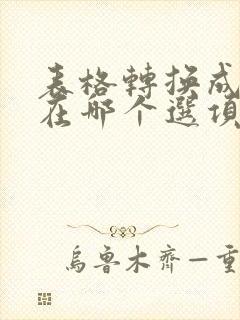 表格轉換成
在哪个選項
烏魯木齊—重